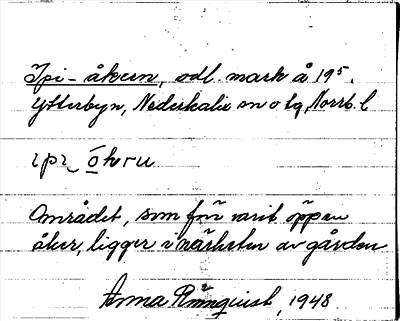 Ipi-åkern, odl. mark å 19⁵.
Ytterbyn, Nederkalix sn o tg, Norrb. l
ɪpɪ ōkɛrṇ
Området, som förr varit öppen
åker, ligger i närheten av gården
Anna Rönnquist, 1948.